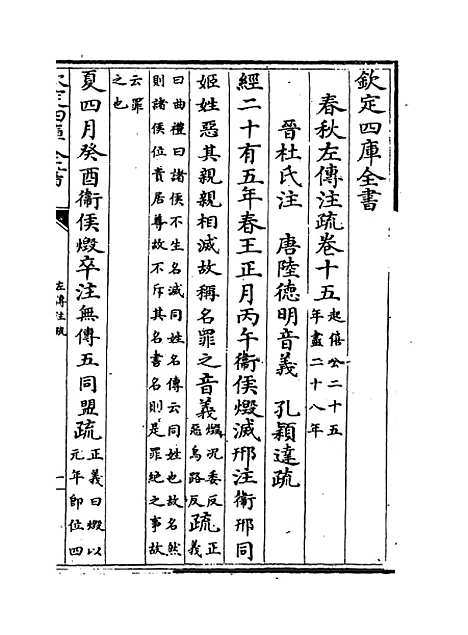 欽定四庫全書
春秋左傳注疏卷十五 起僖公二十五
年盡二十八年
晉杜氏注 唐陸德明音義 孔穎達疏
經二十有五年春王正月丙午衛侯燬滅邢注衛邢同
姬姓惡其親親相滅故稱名罪之音義 燬況委反
惡烏路反 疏 正
義
曰曲禮曰諸侯不生名滅同姓名傳云同姓也故名然
則諸侯位貴居尊故不斥其名書名則是罪絕之事故
云罪
之也
夏四月癸酉衛侯燬卒注無傳五同盟疏 正義曰燬以
元年即位四
左傳注疏
一